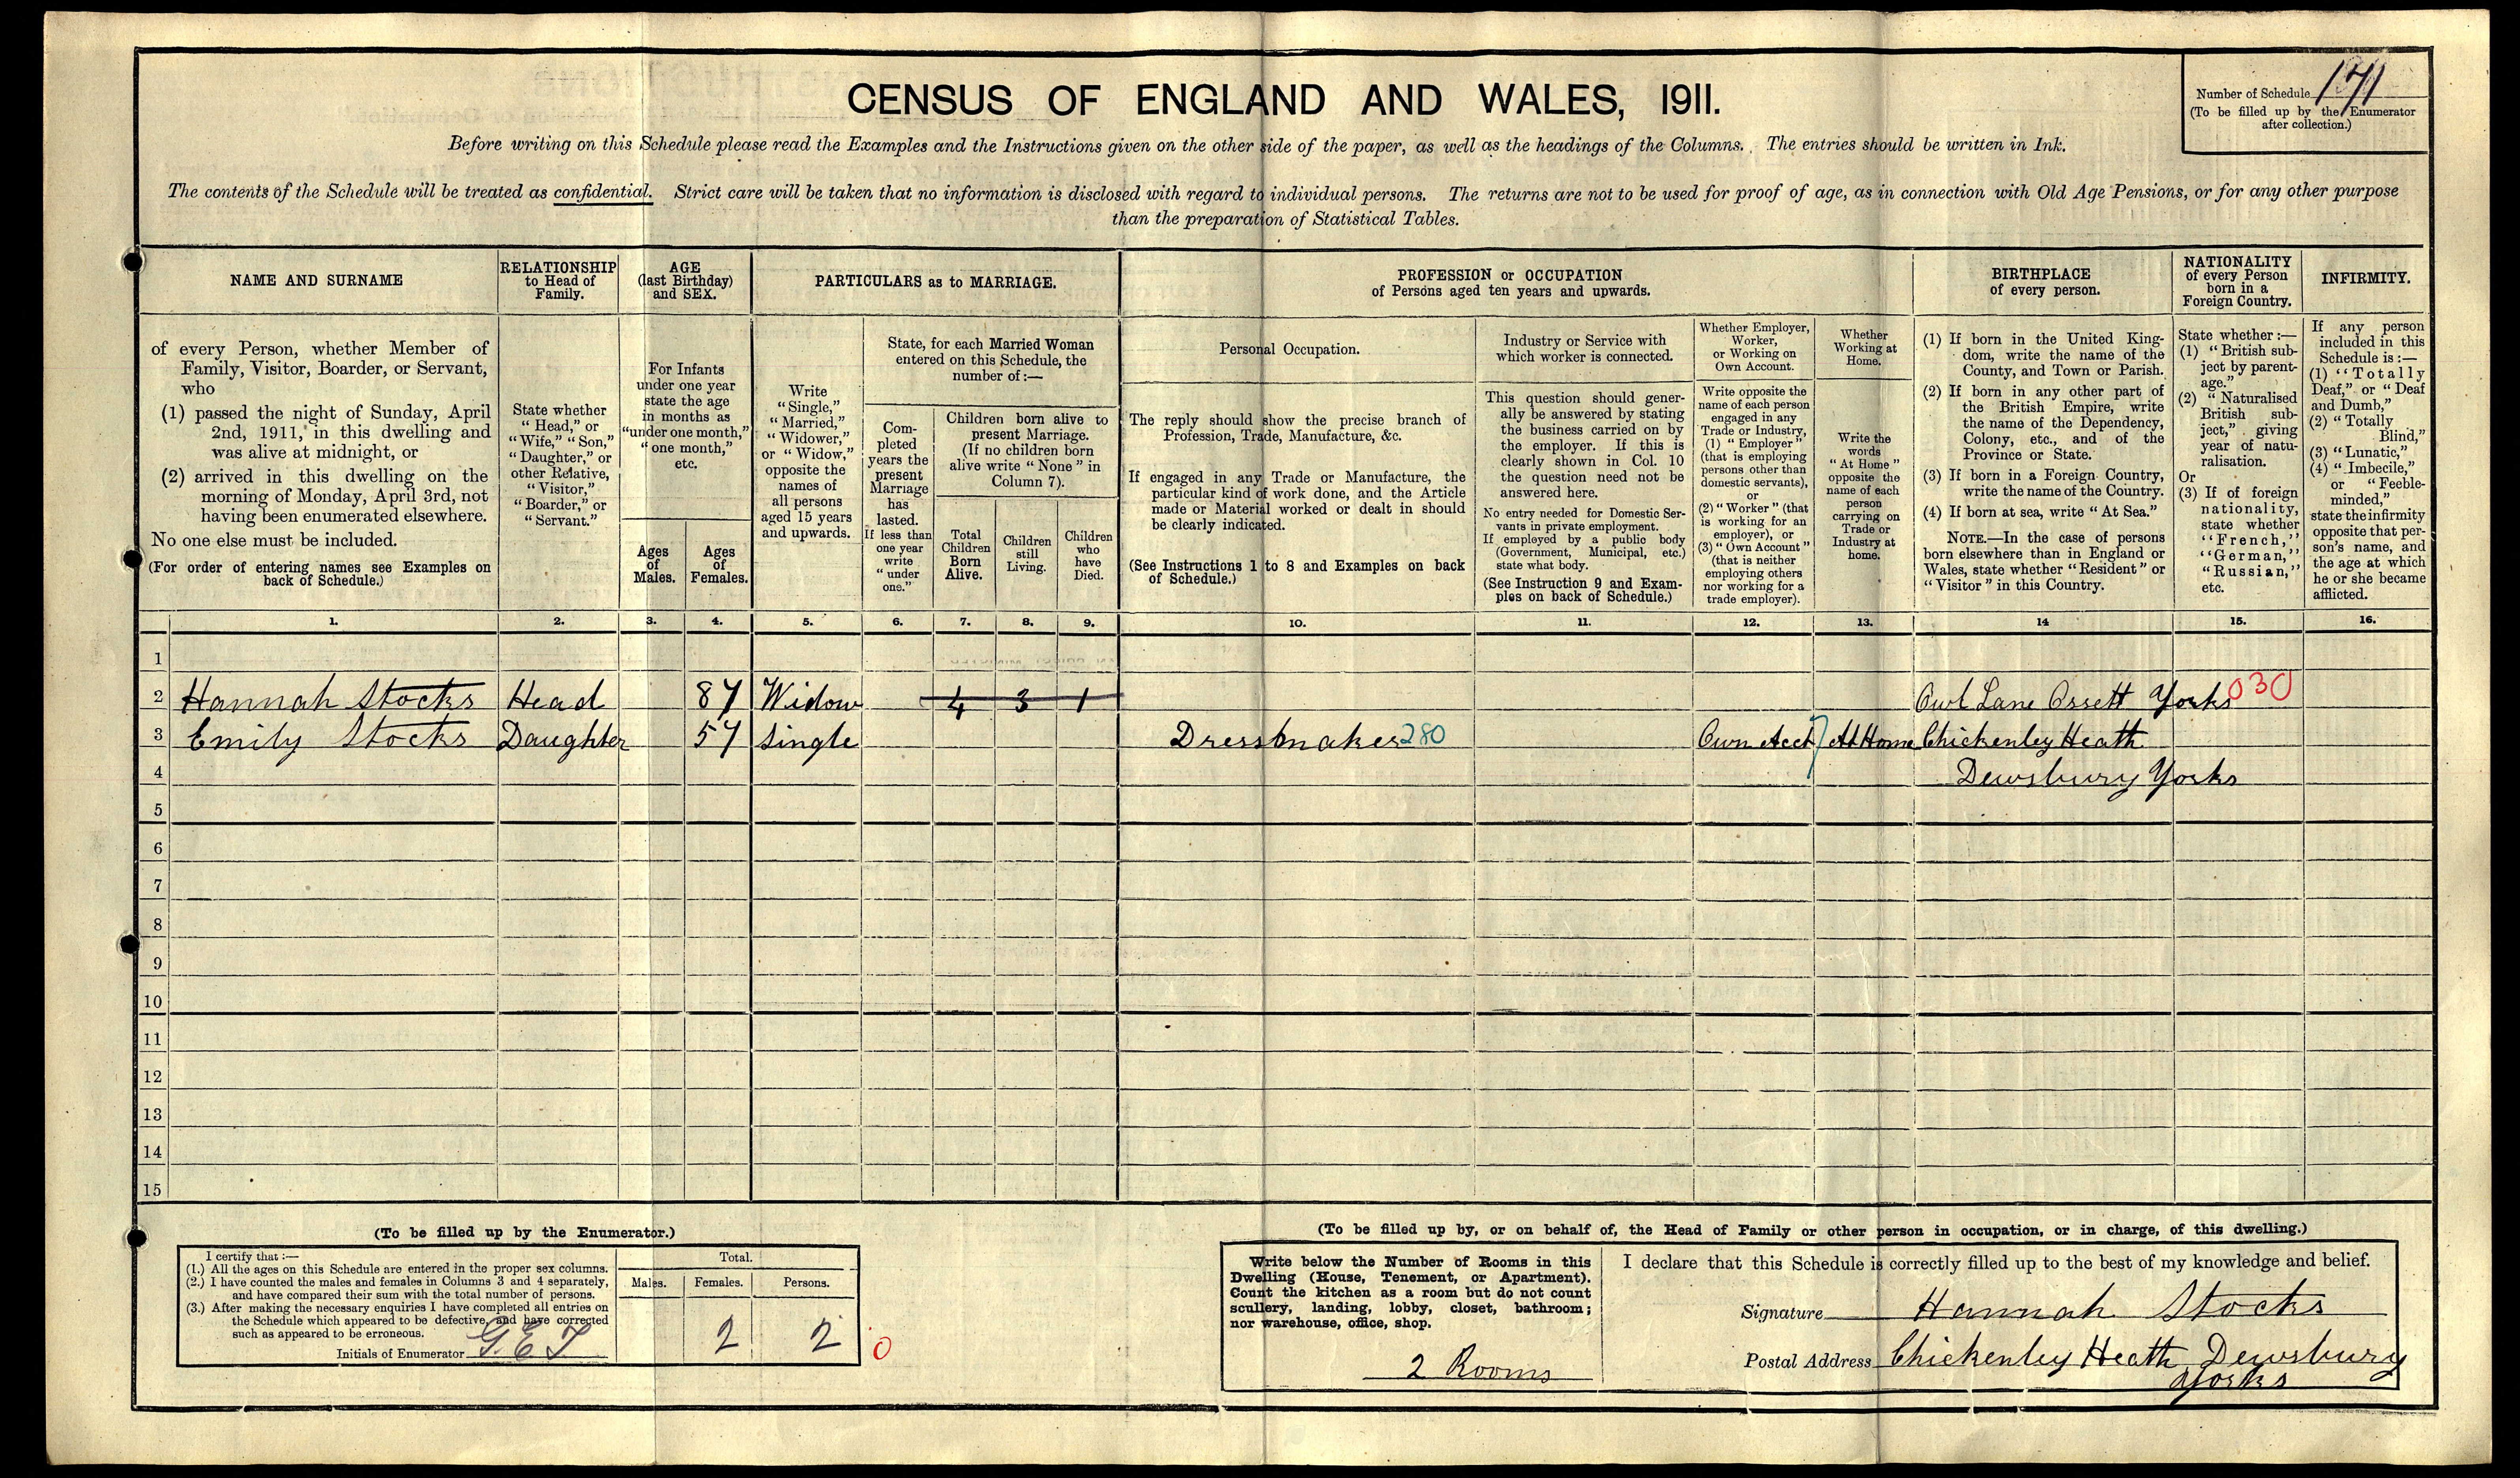 CENSUS OF ENGLAND AND WALES, 1911.
Number of Schedule 171
(To be filled up by the Enumerator
after collection.)
Before writing on this Schedule please read the Examples and the Instructions given on the other side of the paper, as well as the headings of the Columns. The entries should be written in Ink.
The contents of the Schedule will be treated as confidential. Strict care will be taken that no information is disclosed with regard to individual persons. The returns are not to be used for proof of age, as in connection with Old Age Pensions, or for any other purpose
than the preparation of Statistical Tables.
NAME AND SURNAME
of every Person, whether Member of
Family, Visitor, Boarder, or Servant,
who
(1) passed the night of Sunday, April
2nd, 1911, in this dwelling and
was alive at midnight, or
(2) arrived in this dwelling on the
morning of Monday, April 3rd, not
having been enumerated elsewhere.
No one else must be included.
(For order of entering names see Examples on
back of Schedule.)
RELATIONSHIP
to Head of
Family.
State whether
"Head," or
"Wife," "Son,"
"Daughter," or
other Relative,
"Visitor,"
"Boarder," or
"Servant."
AGE
(last Birthday)
and SEX.
For Infants
under one year
state the age
in months as
"under one month,"
"one month,"
etc.
Ages
of
Males.
Ages
of
Females.
PARTICULARS as to MARRIAGE.
Write
"Single,"
"Married,"
"Widower,"
or "Widow,"
opposite the
names of
all persons
aged 15 years
and upwards.
State, for each Married Woman
entered on this Schedule, the
number of:—
Com-
pleted
years the
present
Marriage
has
lasted.
If less than
one year
write
"under
one."
Children born alive to
present Marriage.
(If no children born
alive write "None" in
Column 7).
Total
Children
Born
Alive.
Children
still
Living.
Children
who
have
Died.
PROFESSION or OCCUPATION
of Persons aged ten years and upwards.
Personal Occupation.
The reply should show the precise branch of
Profession, Trade, Manufacture, &c.
If engaged in any Trade or Manufacture, the
particular kind of work done, and the Article
made or Material worked or dealt in should
be clearly indicated.
(See Instructions 1 to 8 and Examples on back
of Schedule.)
Industry or Service with
which worker is connected.
This question should gener-
ally be answered by stating
the business carried on by
the employer. If this is
clearly shown in Col. 10
the question need not be
answered here.
No entry needed for Domestic Ser-
vants in private employment.
If employed by a public body
(Government, Municipal, etc.)
state what body.
(See Instruction 9 and Exam-
ples on back of Schedule.)
Whether Employer,
Worker,
or Working on
Own Account.
Write opposite the
name of each person
engaged in any
Trade or Industry,
(1) "Employer"
(that is employing
persons other than
domestic servants),
or
(2) "Worker" (that
is working for an
employer), or
(3) "Own Account"
(that is neither
employing others
nor working for a
trade employer).
Whether
Working at
Home.
Write the
words
"At Home"
opposite the
name of each
person
carrying on
Trade or
Industry at
home.
BIRTHPLACE
of every person.
(1) If born in the United King-
dom, write the name of the
County, and Town or Parish.
(2) If born in any other part of
the British Empire, write
the name of the Dependency,
Colony, etc., and of the
Province or State.
(3) If born in a Foreign Country,
write the name of the Country.
(4) If born at sea, write "At Sea."
NOTE.—In the case of persons
born elsewhere than in England or
Wales, state whether "Resident" or
"Visitor" in this Country.
NATIONALITY
of every Person
born in a
Foreign Country.
State whether:—
(1) "British sub-
ject by parent-
age."
(2) "Naturalised
British sub-
ject," giving
year of natu-
ralisation.
Or
(3) If of foreign
nationality,
state whether
"French,"
"German,"
"Russian,"
etc.
INFIRMITY.
If any person
included in this
Schedule is:—
(1) "Totally
Deaf," or "Deaf
and Dumb,"
(2) "Totally
Blind,"
(3) "Lunatic,"
(4) "Imbecile,"
or "Feeble-
minded,"
state the infirmity
opposite that per-
son's name, and
the age at which
he or she became
afflicted.
1. 2. 3. 4. 5. 6. 7. 8. 9. 10. 11. 12. 13. 14 15. 16.
1
2 Hannah Stocks Head 87 Widow 4 3 1 Owl Lane Ossett Yorks 030
3 Emily Stocks Daughter 57 Single Dressmaker 280 Own Acct At Home Chickenley Heath
4 Dewsbury Yorks
5
6
7
8
9
10
11
12
13
14
15
(To be filled up by the Enumerator.)
I certify that:—
(1.) All the ages on this Schedule are entered in the proper sex columns.
(2.) I have counted the males and females in Columns 3 and 4 separately,
and have compared their sum with the total number of persons.
(3.) After making the necessary enquiries I have completed all entries on
the Schedule which appeared to be defective, and have corrected
such as appeared to be erroneous.
Initials of Enumerator G.E.T
Total.
Males. Females. Persons.
2 2 0
(To be filled up by, or on behalf of, the Head of Family or other person in occupation, or in charge, of this dwelling.)
Write below the Number of Rooms in this
Dwelling (House, Tenement, or Apartment).
Count the kitchen as a room but do not count
scullery, landing, lobby, closet, bathroom;
nor warehouse, office, shop.
2 Rooms
I declare that this Schedule is correctly filled up to the best of my knowledge and belief.
Signature Hannah Stocks
Postal Address Chickenley Heath Dewsbury
Yorks